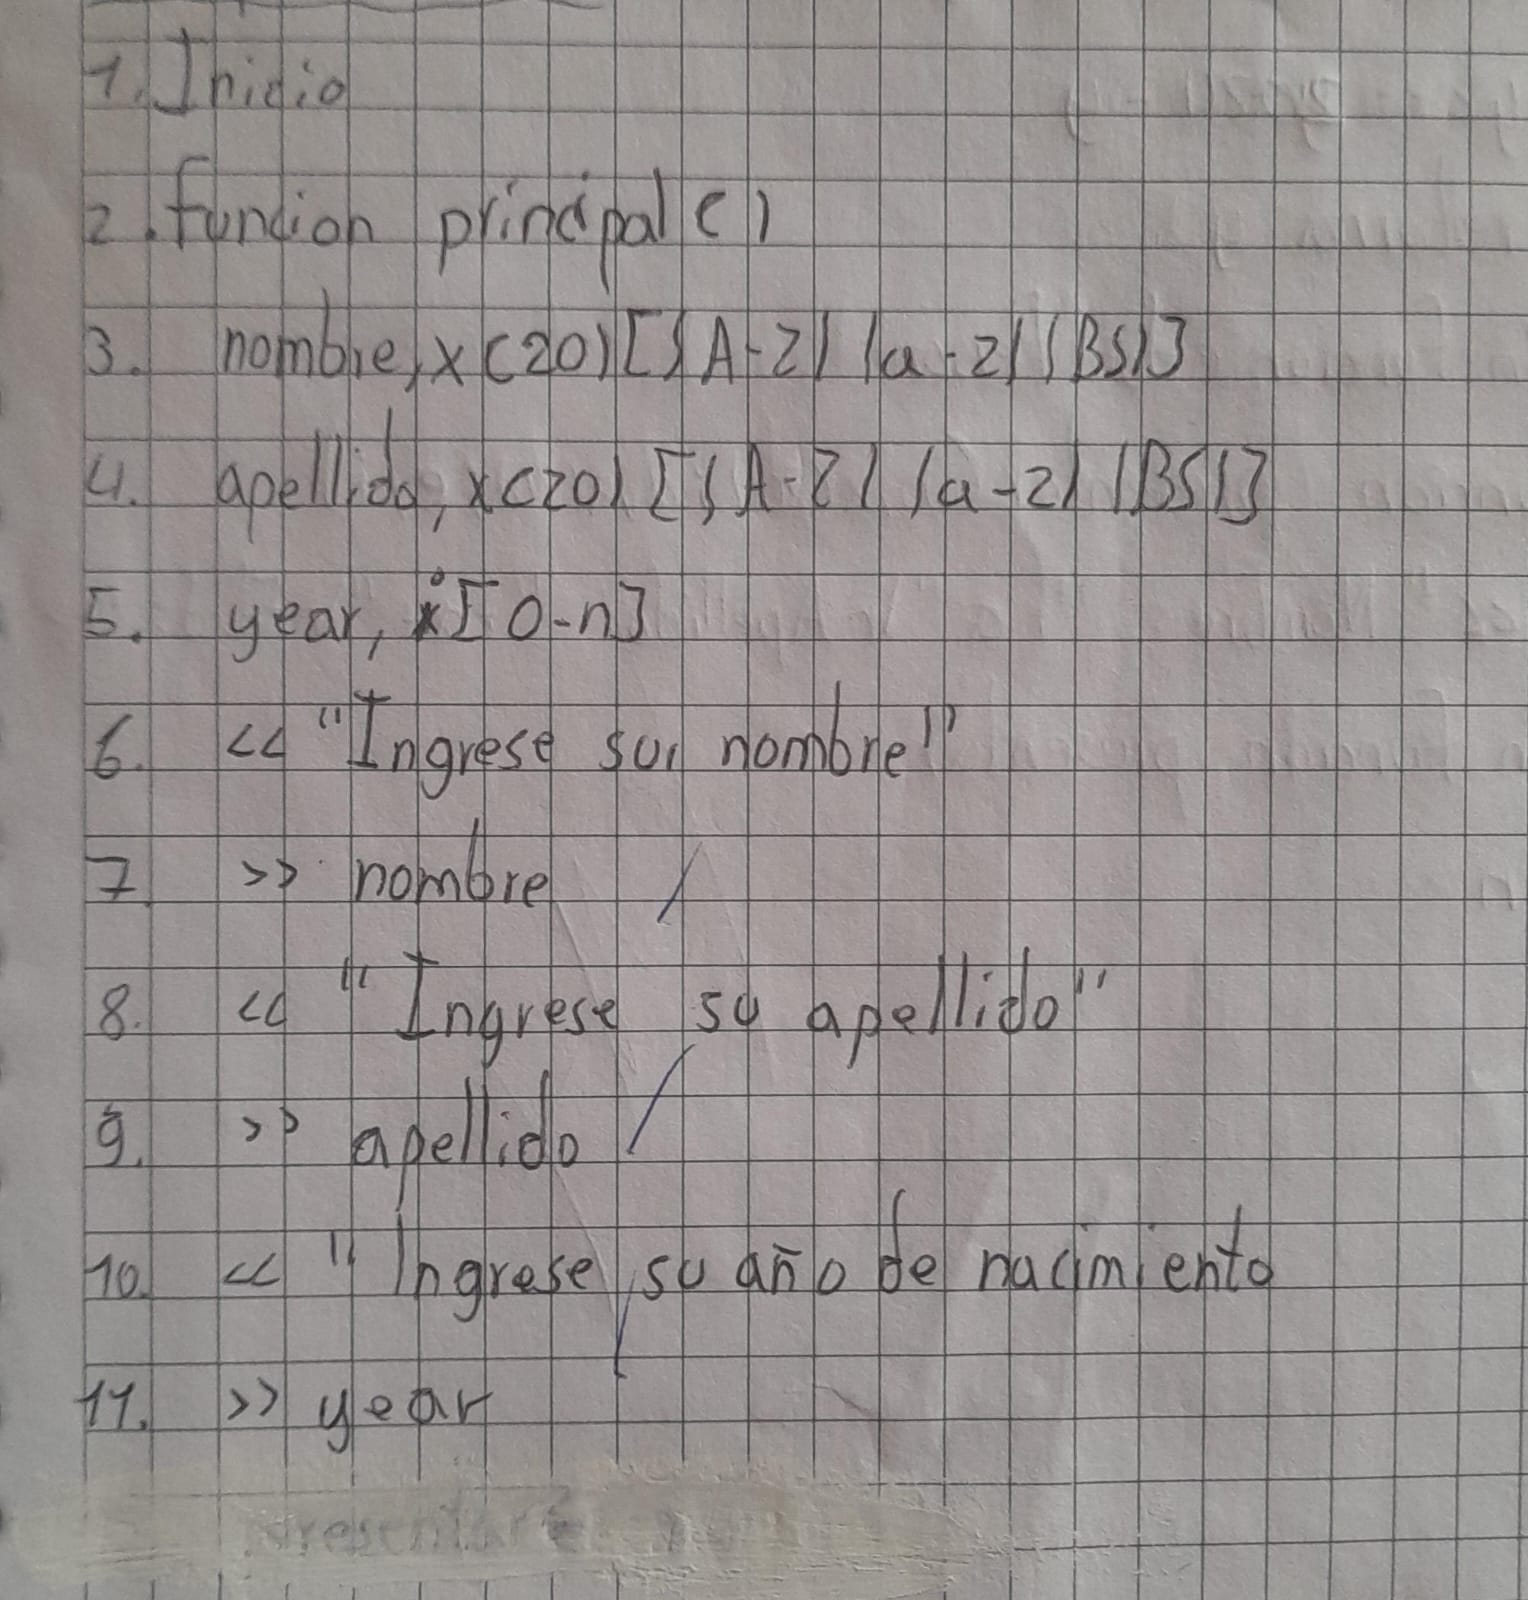 1. Inicio
2. funcion principal()
3. nombre, x(20)[{A-Z} {a-z} {BS}]
4. apellido, x(20) [{A-Z} {a-z} {BS}]
5. year, i[0-n]
6. << "Ingrese su nombre"
7 >> nombre
8. << "Ingrese su apellido"
9. >> apellido
10. << "Ingrese su año de nacimiento
11. >> year